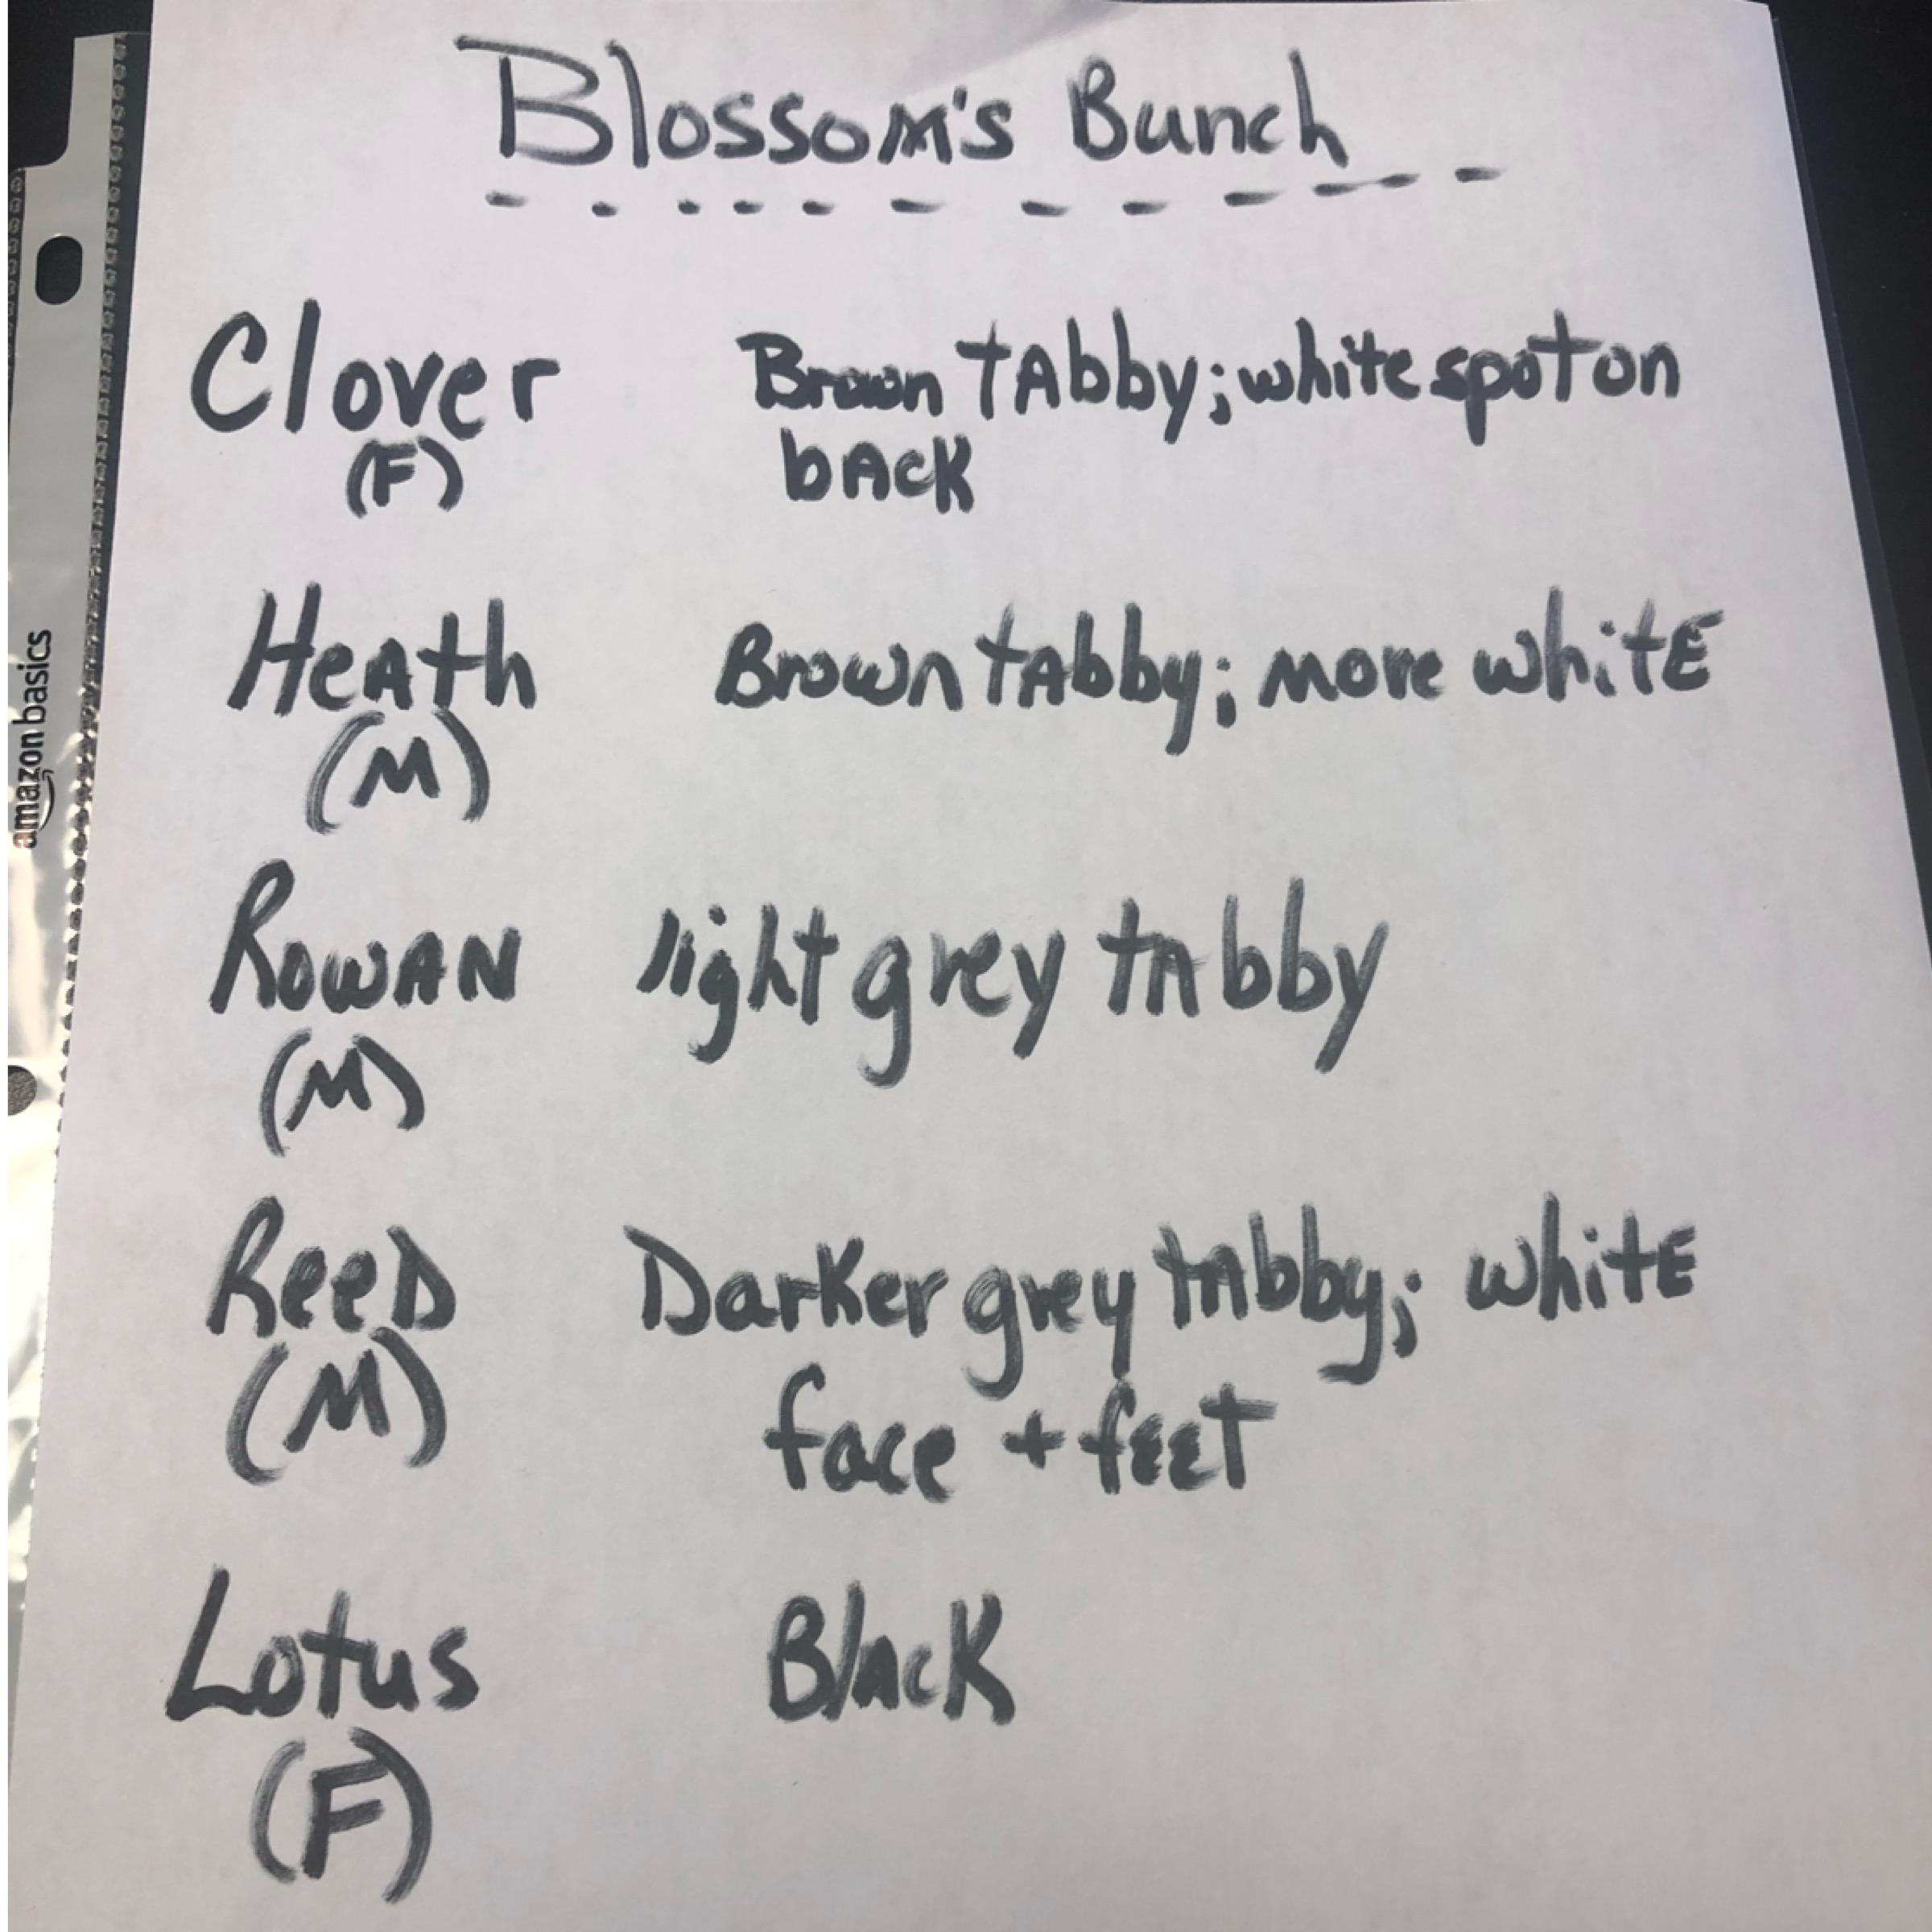 Blossom's Bunch
Clover Brown tabby; white spot on
(F) back
Heath Brown tabby; more white
(M)
Rowan light grey tabby
(M)
Reed Darker grey tabby; white
(M) face + feet
Lotus Black
(F)
amazon basics